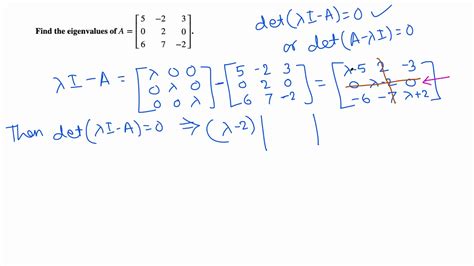 det(λI-A)=0 ✓
Find the eigenvalues of A = [5 -2 3; 0 2 0; 6 7 -2].
or det(A-λI)=0
λI-A = [λ 0 0; 0 λ 0; 0 0 λ] - [5 -2 3; 0 2 0; 6 7 -2] = [λ-5 2 -3; 0 λ-2 0; -6 -7 λ+2] ←
Then det(λI-A)=0 ⇒ (λ-2)| |